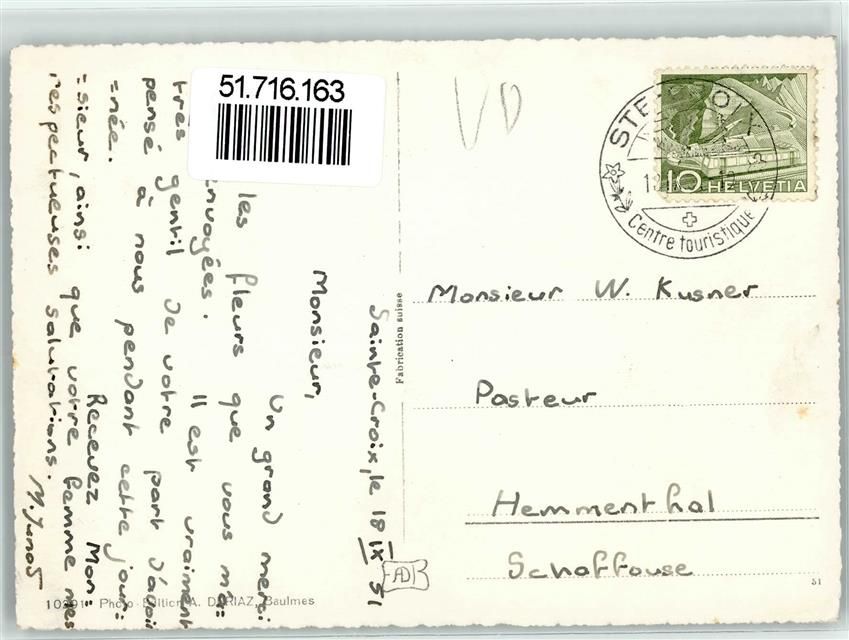 51.716.163
VD
STE-CROIX
Centre touristique
10 HELVETIA
Sainte-Croix, le 18 IX 51
Monsieur,
Un grand merci
les fleurs que vous m'a=
envoyées. Il est vraiment
très gentil de votre part d'avoir
pensé à nous pendant cette jour=
=née. Recevez Mon=
=sieur, ainsi que votre femme mes
respectueuses salutations.
Monsieur W. Kusner
Pasteur
Hemmenthal
Schaffouse
Fabrication suisse
Photo-Edition A. DÉRIAZ, Baulmes
51